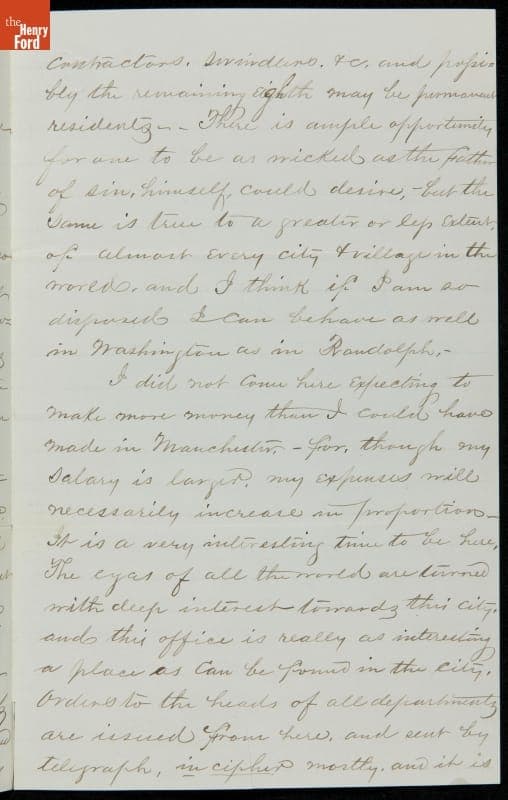 the
Henry
Ford
contractors, swindlers, &c. and possi-
bly the remaining eighth may be permanent
residents - There is ample opportunity
for one to be as wicked as the Father
of sin, himself, could desire, - but the
same is true to a greater or less extent,
of almost every city & village in the
world, and I think if I am so
disposed I can behave as well
in Washington as in Randolph, -
I did not come here expecting to
make more money than I could have
made in Manchester, - for, though my
salary is larger, my expenses will
necessarily increase in proportion -
It is a very interesting time to be here,
The eyes of all the world are turned
with deep interest towards this city,
and this office is really as interesting
a place as can be found in the city.
Orders to the heads of all departments
are issued from here, and sent by
telegraph, in cipher mostly, and it is